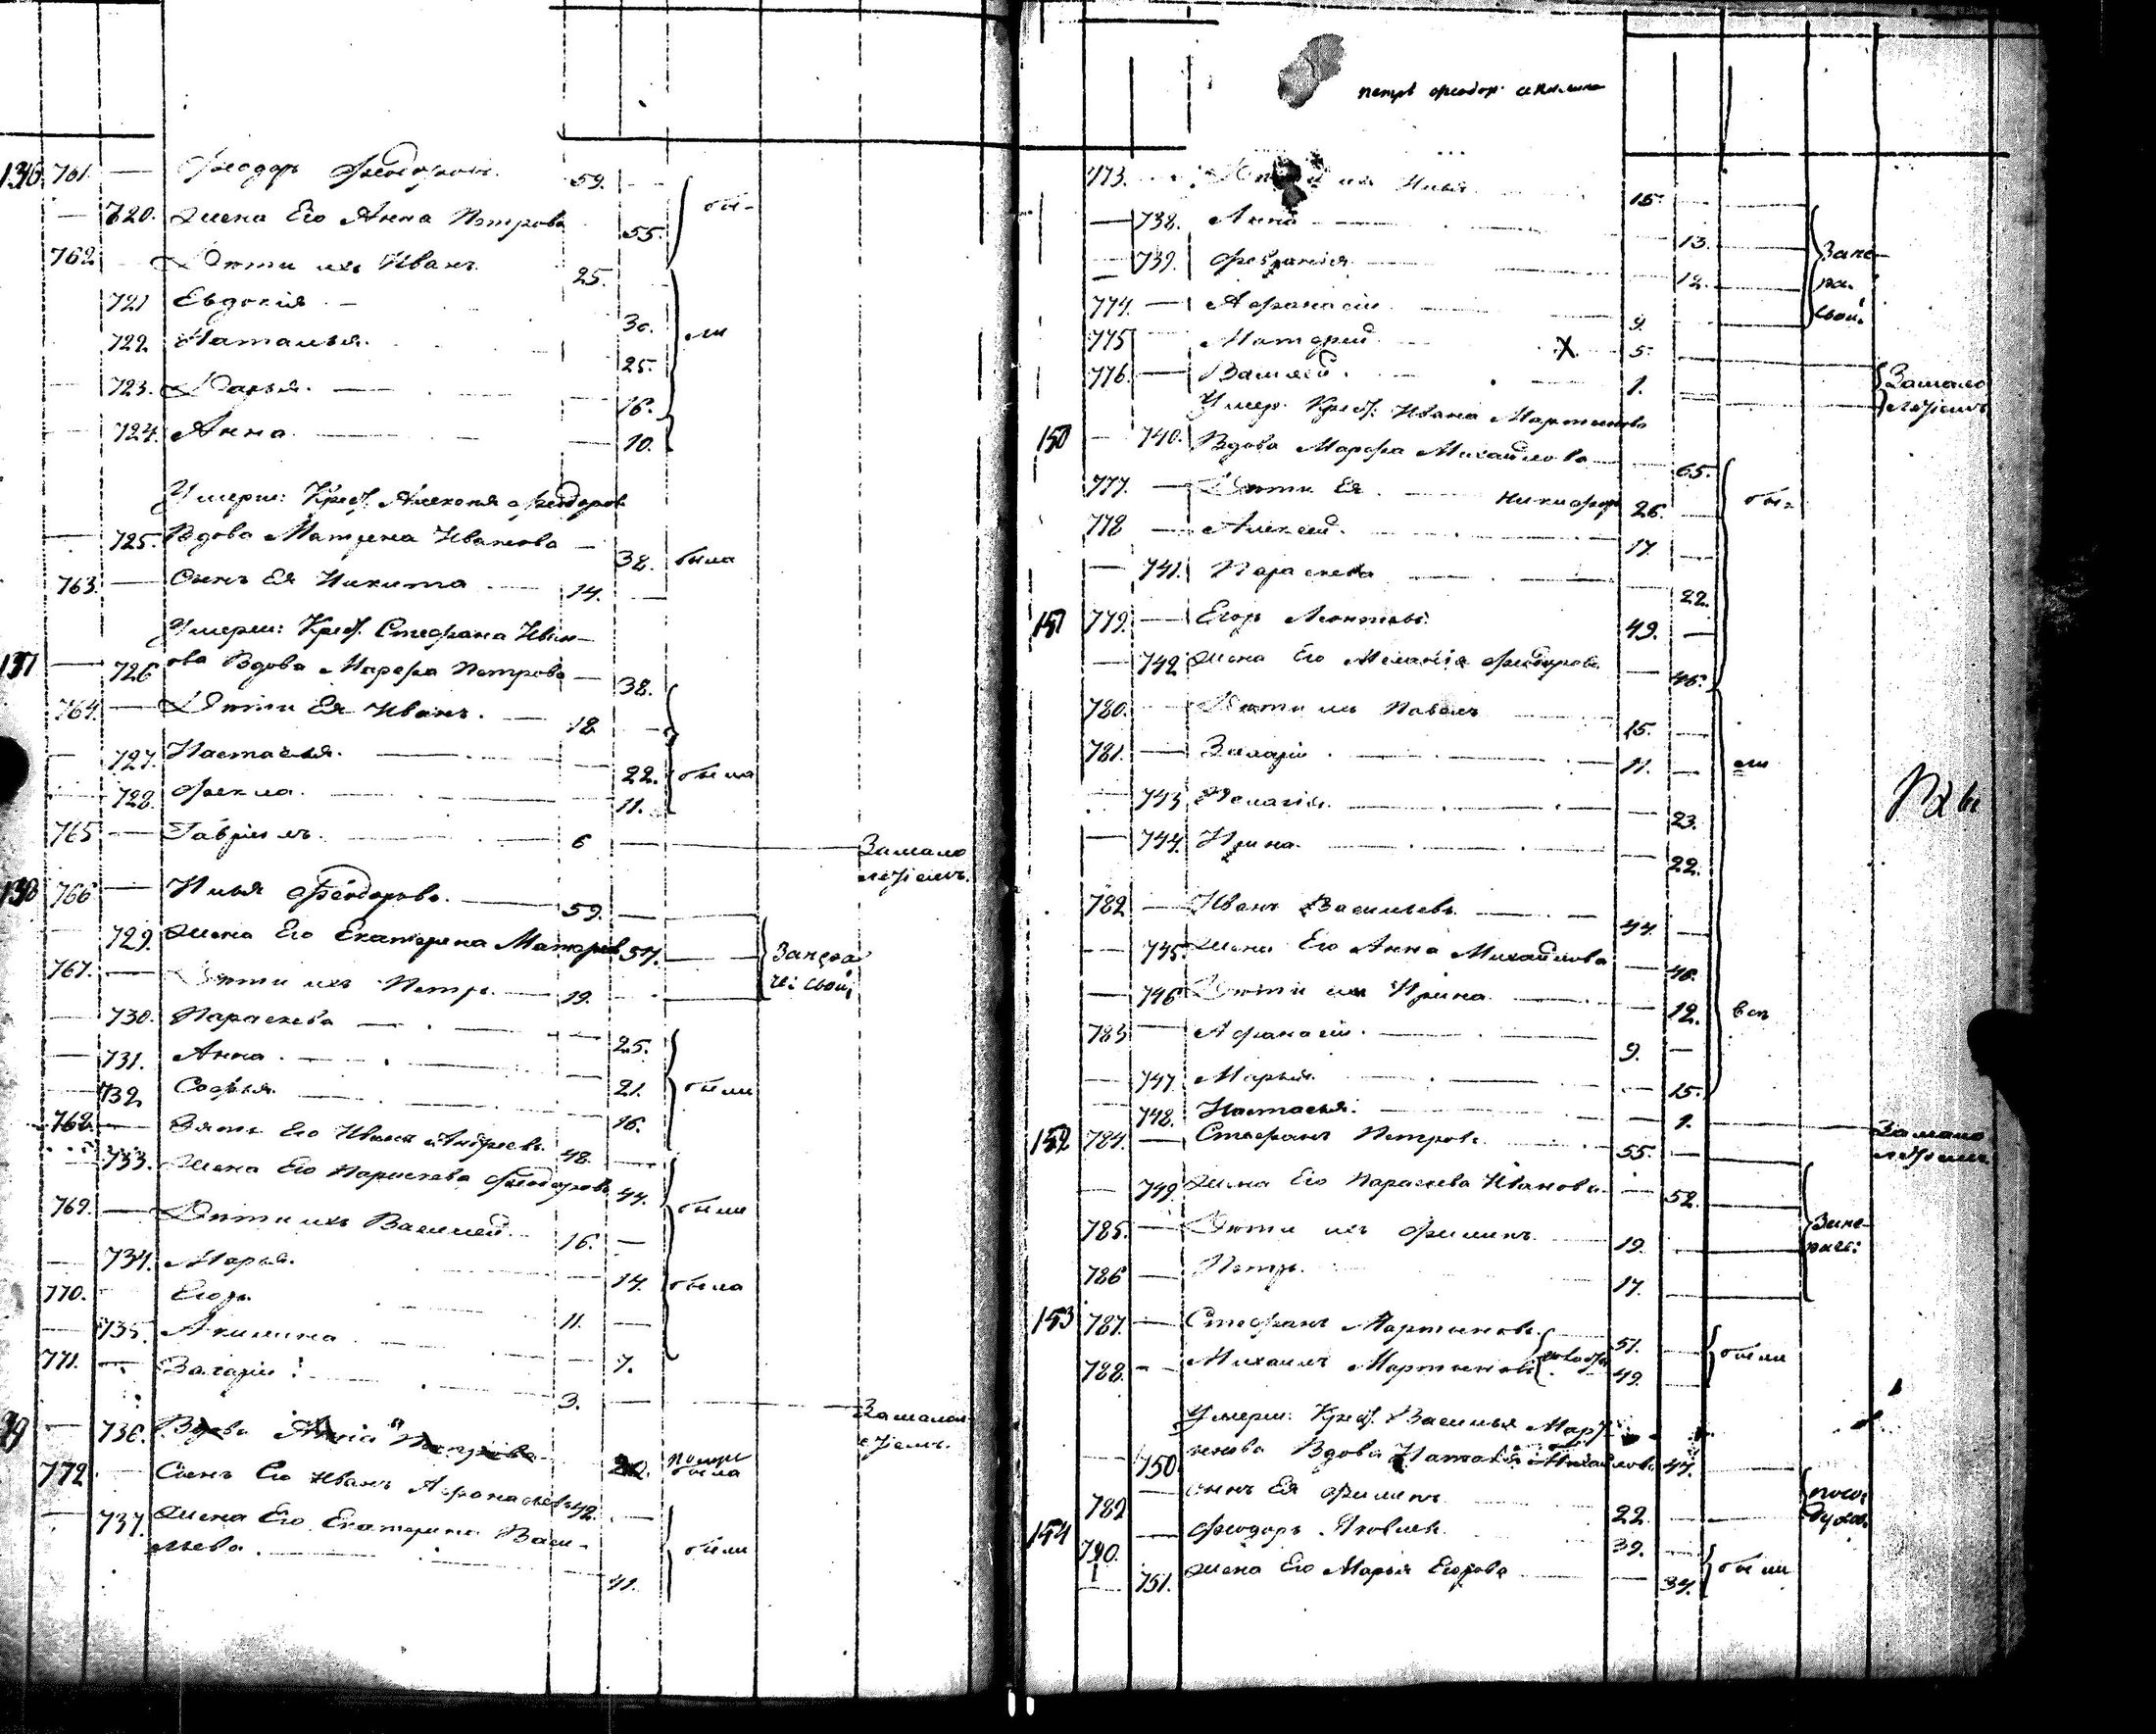 136 761 — Ѳеодоръ Ѳеодоровъ 59. —
— 720. Жена Его Анна Петрова 55. бы-
762 — Дѣти ихъ Иванъ 25.
721 Евдокія — 30.
722 Наталья. 25. ли
— 723. Дарья. — 16.
— 724. Анна — 10.
Умерш: Крест. Алексѣя Ѳеодоров
— 725. Вдова Матрена Иванова — 38. была
763. — Сынъ Ея Никита 14. —
Умерш: Крест. Стефана Иван-
137 — 726 ова Вдова Марфа Петрова — 38.
764. — Дѣти Ея Иванъ. — 18. —
— 727. Настасья. — 22. были
728. Ѳекла. — 11.
765 — Гавріилъ 6 — Замало
лѣтіемъ.
138 766 — Илья Ѳеодоровъ. — 59. —
729. Жена Его Екатерина Матѳѣев 57. —
767. — Дѣти ихъ Петръ — 19.
— 730. Параскева — 25.
— 731. Анна. — 21.
732 Софья. 16. были
768. — Зять Его Иванъ Андреевъ 48. —
733. Жена Его Параскева Ѳеодорова 44.
769. — Дѣти ихъ Василей. 16. — были
— 734. Марья. 14. была
770. Егоръ 11. —
— 735. Акилина 7.
771. — Захарій 3. — Замалол
ѣтіемъ.
— 736. Вдова Петрова
772 — Сынъ Ея Иванъ Аѳонасьевъ 42. — была
— 737. Жена Его Екатерина Васи-
льева 41. были
Петръ Ѳеодор.
773. Дѣти ихъ Илья 15. —
— 738. Анна — 13.
— 739. Ѳевронія — 12.
774. — Аѳанасій 9.
775 Матѳей X 5.
776. — Василей. 1. Замало
лѣтіемъ
Умер. Крест: Ивана Мартинова
150 — 740. Вдова Марфа Михайлова — 65.
777. — Дѣти Ея — Никифоръ 26. — бы-
778 — Алексей. 17. —
— 741. Параскева — 22.
151 779. — Егоръ Леонтьевъ 49. —
— 742 Жена Его Меланія Ѳеодорова — 46.
780. Дѣти ихъ Павелъ 15. —
781. — Захарій 11. — ли
743 Пелагія. — 23.
— 744. Ирина. — 22.
782 — Иванъ Васильевъ — 44. —
— 745. Жена Его Анна Михайлова — 40.
— 746 Дѣти ихъ Ирина — 12.
783 — Аѳанасій. 9. —
— 747 Марья. — 15.
748. Настасья. — 1. Замало
лѣтіемъ
152 784. — Стефанъ Петровъ 55. —
— 749. Жена Его Параскева Иванова — 52.
785. — Дѣти ихъ Филипъ 19. —
786 — Петръ. 17.
153 787. — Стефанъ Мартыновъ 51. —
788. — Михаилъ Мартыновъ 49. — были
Умерш: Крест. Василья Март
— 750 инова Вдова Наталья Михайлова 47.
789 — сынъ Ея Филипъ 22. —
154 790. — Ѳеодоръ Яковлевъ 39. —
— 751. Жена Его Марья Егорова — 34. были